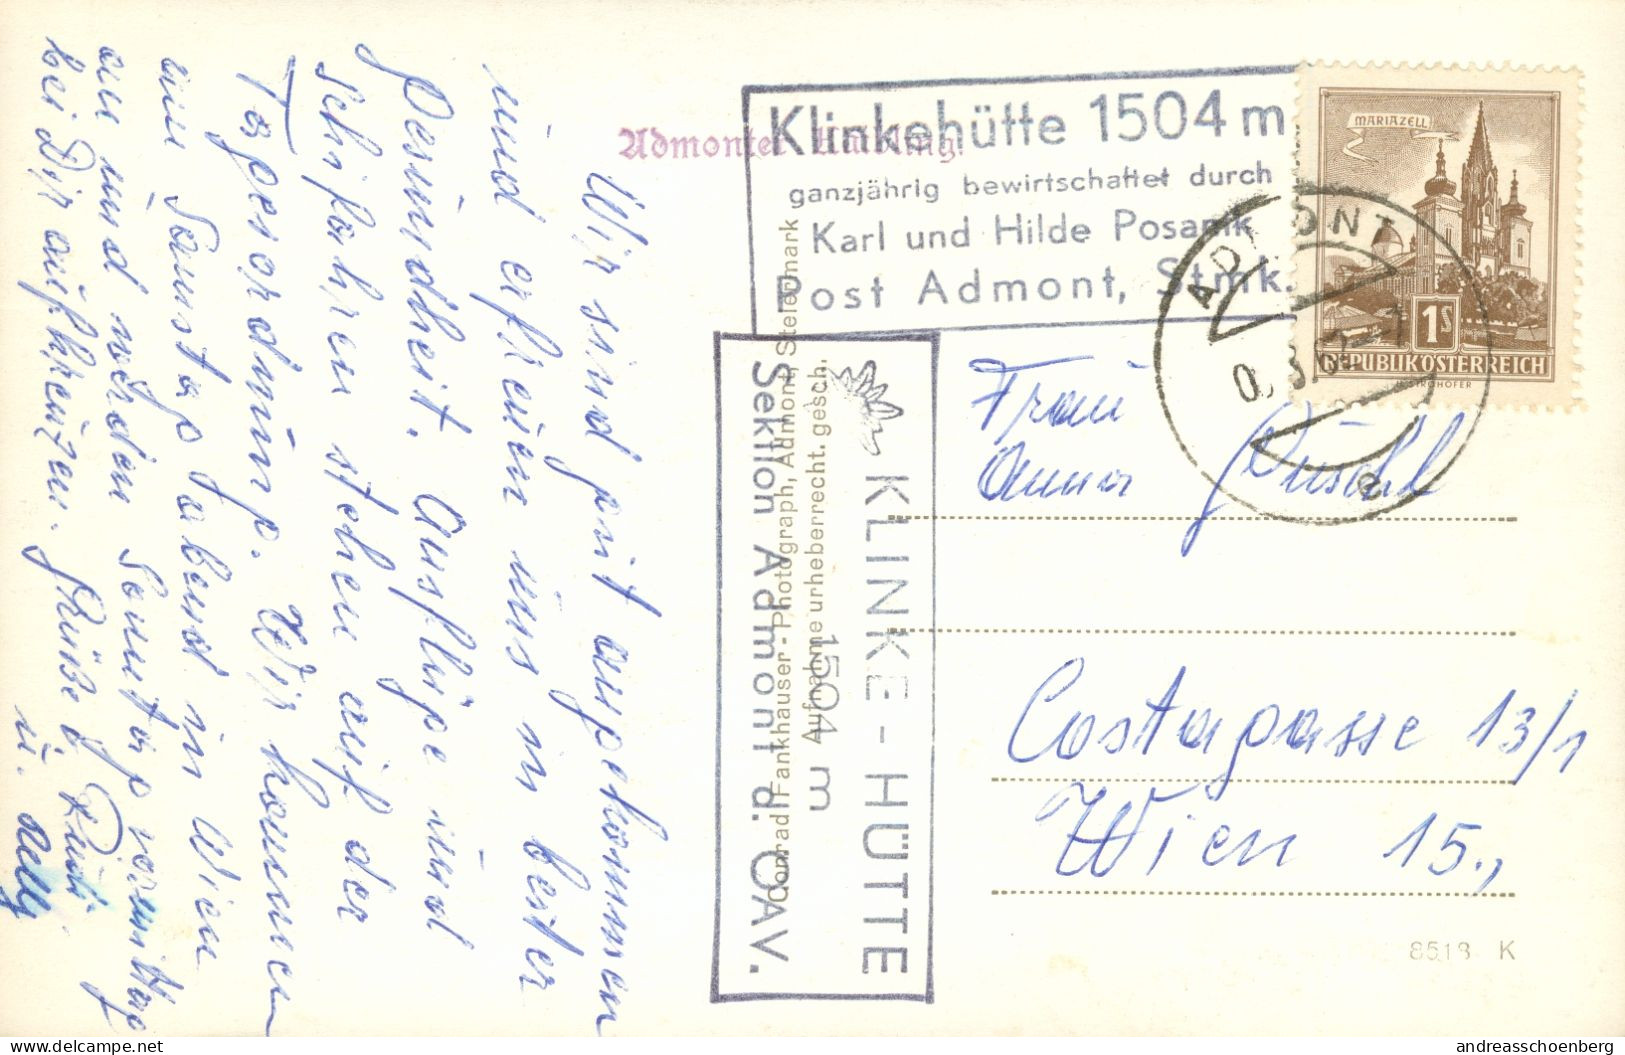 Wir sind gut angekommen
und erfreuen uns in bester
Gesundheit. Ausflüge und
Schifahren stehen auf der
Tagesordnung. Wir kommen
am Samstag abend in Wien
an und werden Sonntag vormittag
bei Dir aufkreuzen. Grüße
Rudi
u. Nelly
Admonter Kalbling.
Klinkehütte 1504 m
ganzjährig bewirtschaftet durch
Karl und Hilde Posanik
Post Admont, Stmk.
KLINKE-HÜTTE
1504 m
Sektion Admont d. ÖAV.
Conrad Fankhauser - Photograph, Admont, Steiermark
Aufnahme urheberrecht. gesch.
MARIAZELL
1S
REPUBLIK ÖSTERREICH
STROHOFER
ADMONT
Frau
Anna
Costagasse 13/1
Wien 15.,
8513 K
delcampe.net
andreasschoenberg